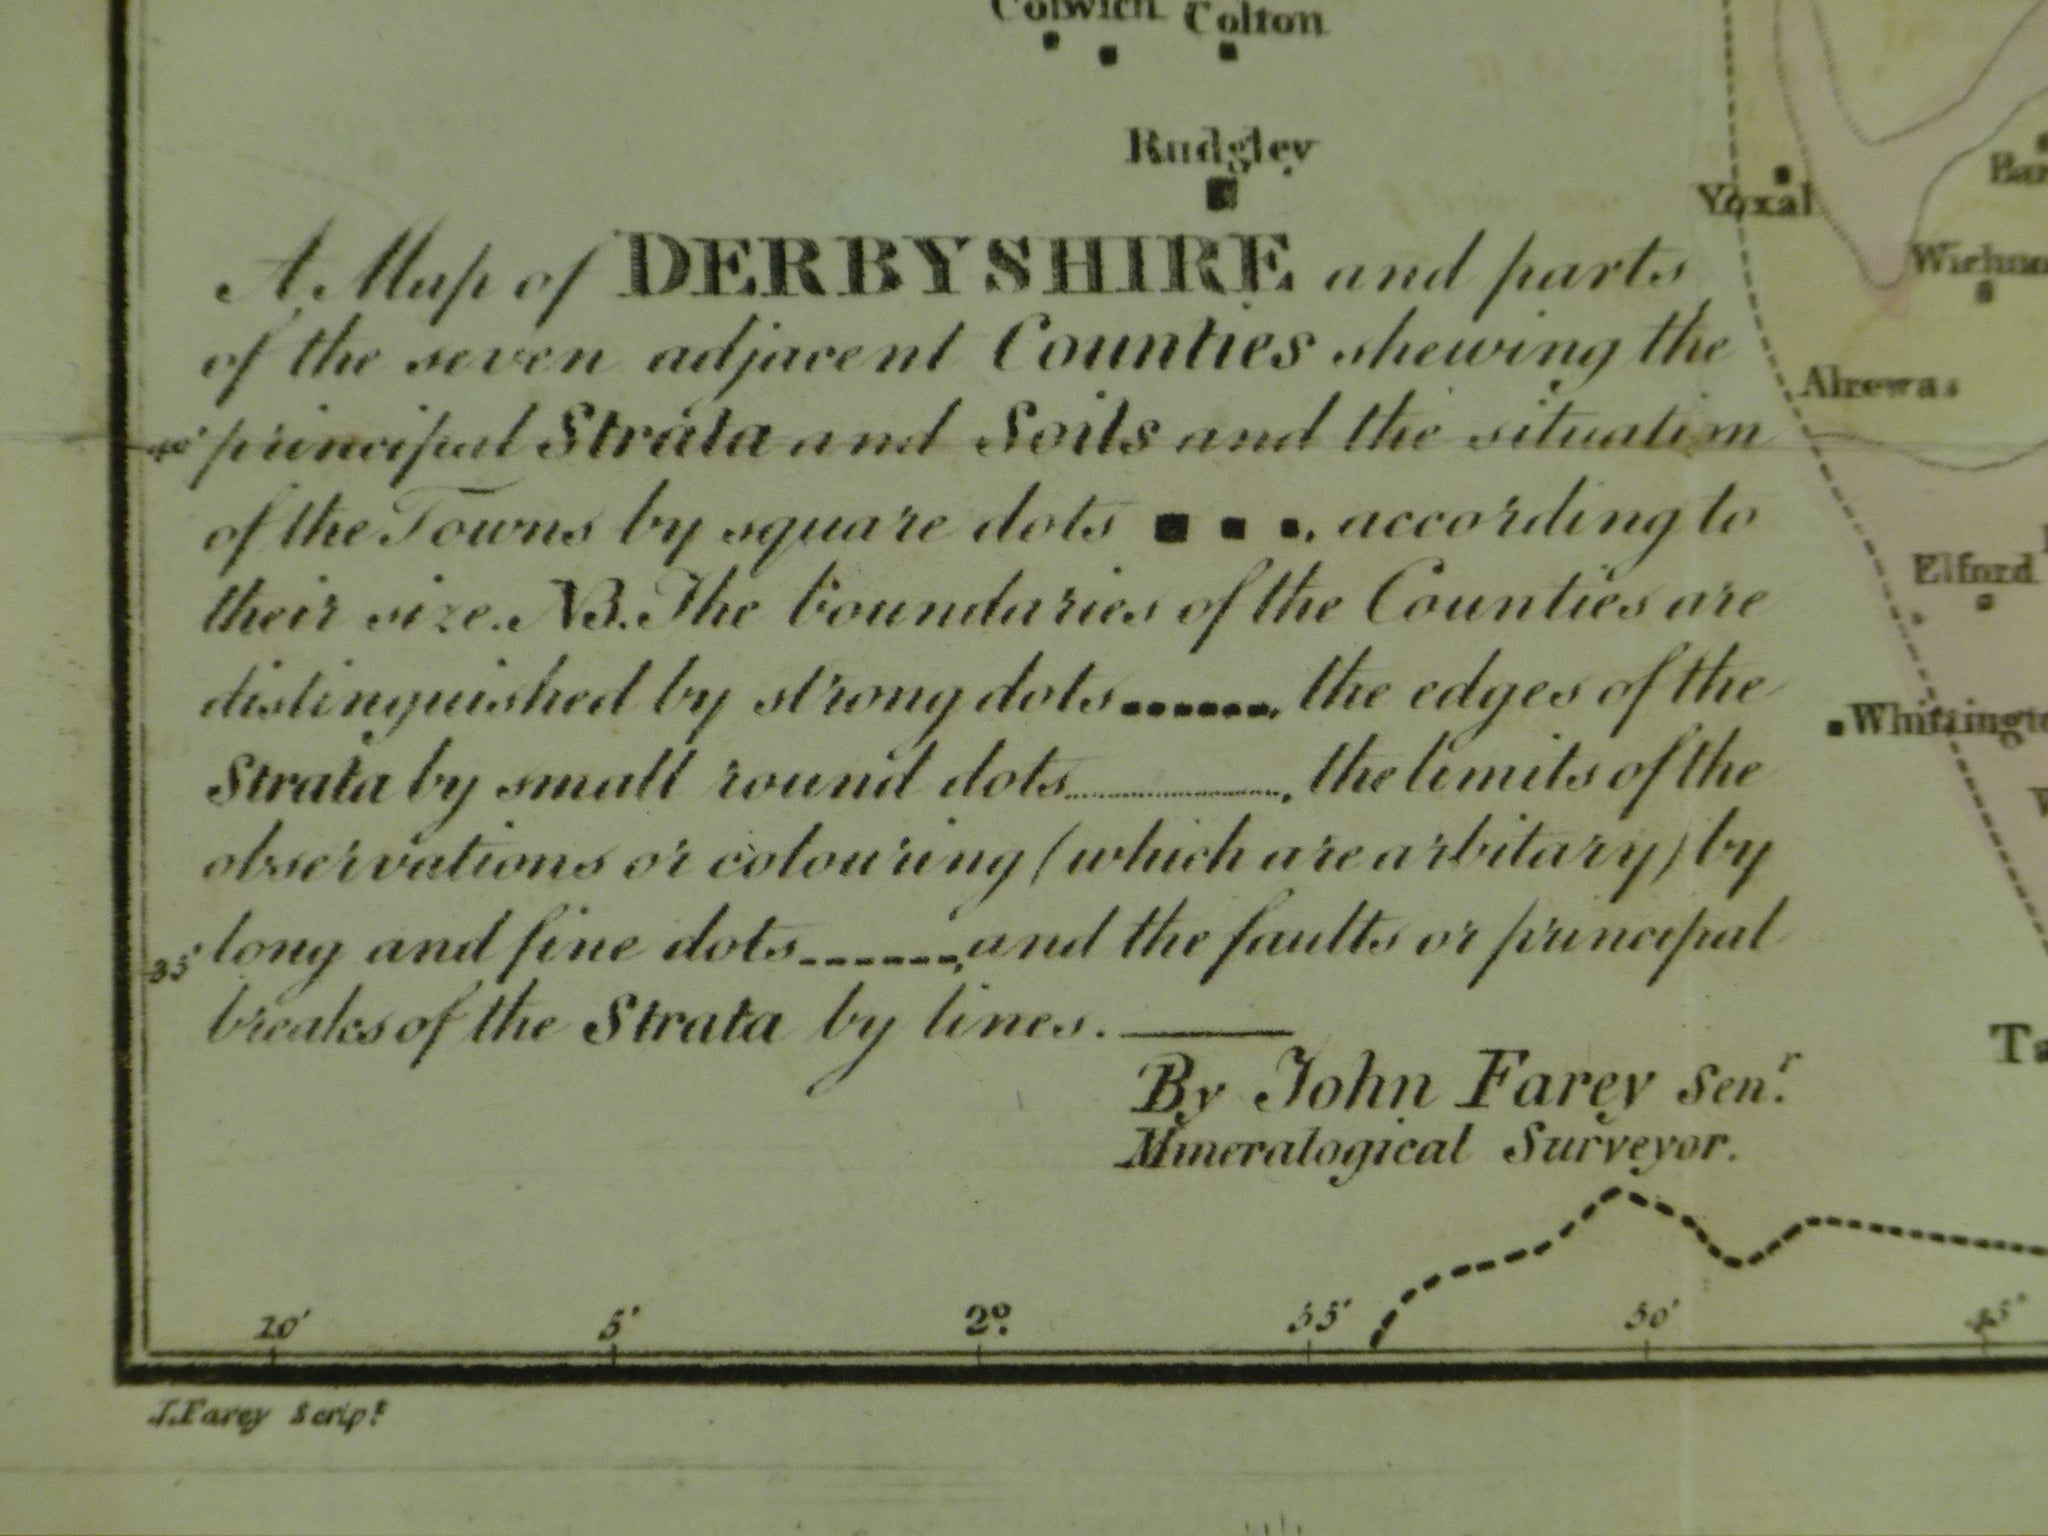 Colwich Colton
Rudgley
Yoxal
Alrewas
Elford
A Map of DERBYSHIRE and parts
of the seven adjacent Counties shewing the
40' principal Strata and Soils and the situation
of the Towns by square dots ▪ ▪ ▪, according to
their size. NB. The boundaries of the Counties are
distinguished by strong dots......, the edges of the
Strata by small round dots.............., the limits of the
observations or colouring (which are arbitary) by
35' long and fine dots------, and the faults or principal
breaks of the Strata by lines. ——
By John Farey Senr.
Mineralogical Surveyor.
10' 5' 2°. 55' 50' 45'
J. Farey Script